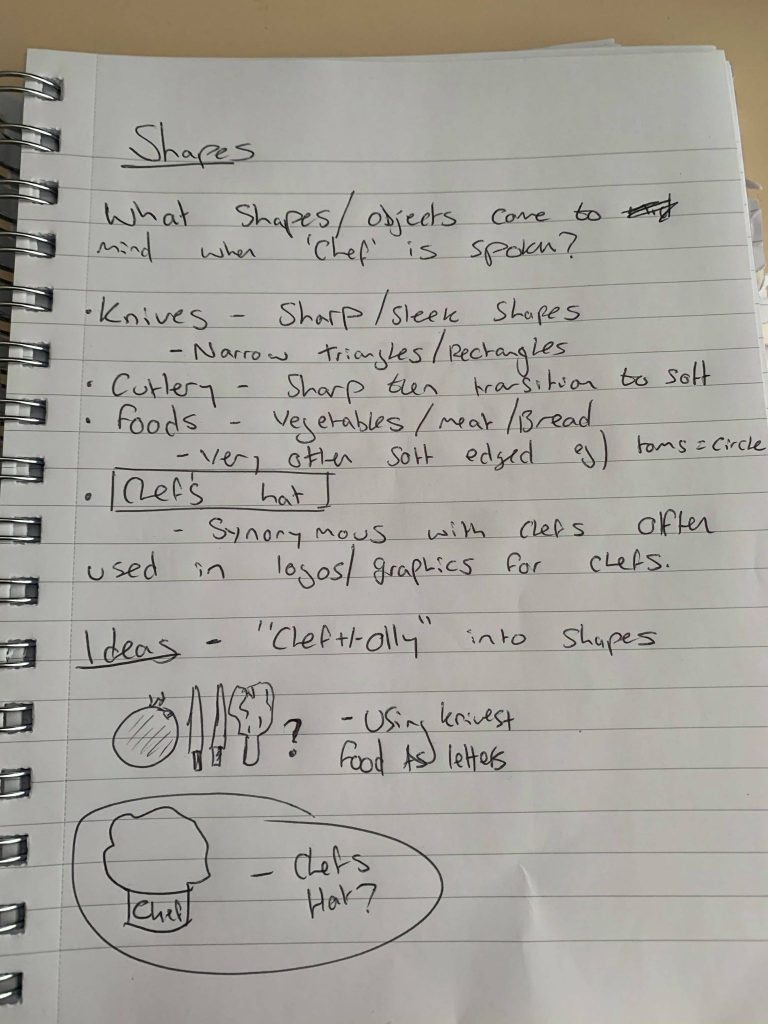 Shapes
What shapes/objects come to
mind when 'Chef' is spoken?
• Knives - Sharp/sleek shapes
- Narrow triangles/Rectangles
• Cutlery - Sharp then transition to soft
• Foods - Vegetables/meat/Bread
- Very often soft edged eg) toms = circle
• Chef's hat
- Synonymous with chefs often
used in logos/graphics for chefs.
Ideas - "Chef+H-olly" into shapes
? - Using knives+
food as letters
Chef - Chefs
Hat?